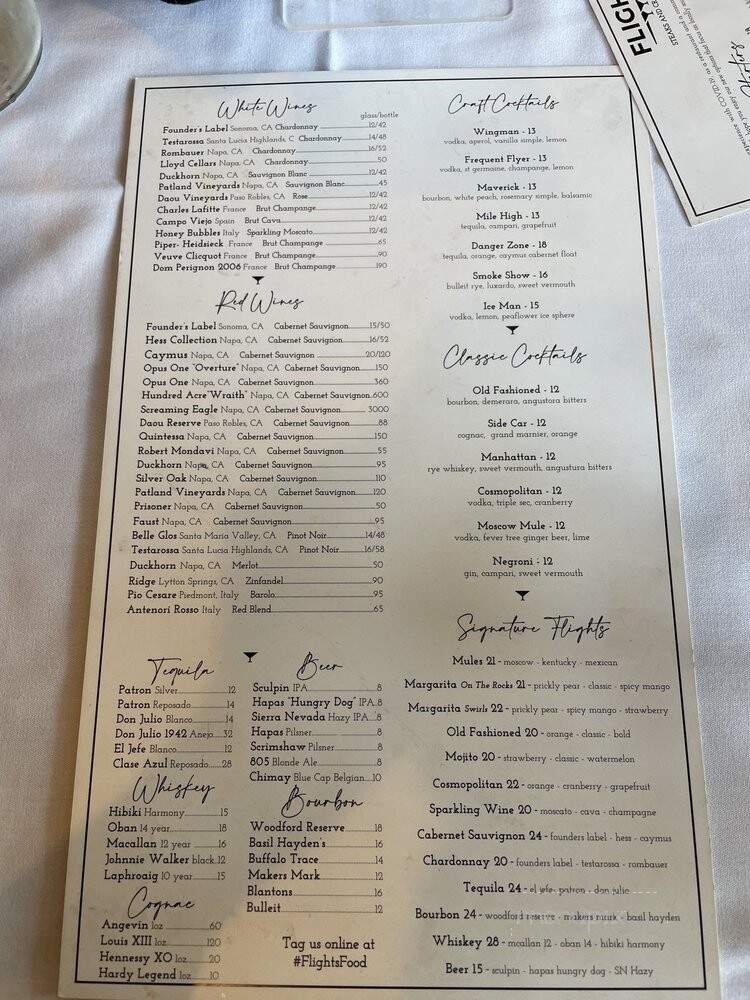 White Wines
glass/bottle
Founder's Label Sonoma, CA Chardonnay 12/42
Testarossa Santa Lucia Highlands, C Chardonnay 14/48
Rombauer Napa, CA Chardonnay 16/52
Lloyd Cellars Napa, CA Chardonnay 50
Duckhorn Napa, CA Sauvignon Blanc 12/42
Patland Vineyards Napa, CA Sauvignon Blanc 45
Daou Vineyards Paso Robles, CA Rose 12/42
Charles Lafitte France Brut Champange 12/42
Campo Viejo Spain Brut Cava 12/42
Honey Bubbles Italy Sparkling Moscato 12/42
Piper- Heidsieck France Brut Champange 65
Veuve Clicquot France Brut Champange 90
Dom Perignon 2006 France Brut Champange 190
Red Wines
Founder's Label Sonoma, CA Cabernet Sauvignon 15/50
Hess Collection Napa, CA Cabernet Sauvignon 16/52
Caymus Napa, CA Cabernet Sauvignon 20/120
Opus One "Overture" Napa, CA Cabernet Sauvignon 150
Opus One Napa, CA Cabernet Sauvignon 360
Hundred Acre "Wraith" Napa, CA Cabernet Sauvignon 600
Screaming Eagle Napa, CA Cabernet Sauvignon 3000
Daou Reserve Paso Robles, CA Cabernet Sauvignon 88
Quintessa Napa, CA Cabernet Sauvignon 150
Robert Mondavi Napa, CA Cabernet Sauvignon 55
Duckhorn Napa, CA Cabernet Sauvignon 95
Silver Oak Napa, CA Cabernet Sauvignon 110
Patland Vineyards Napa, CA Cabernet Sauvignon 120
Prisoner Napa, CA Cabernet Sauvignon 50
Faust Napa, CA Cabernet Sauvignon 95
Belle Glos Santa Maria Valley, CA Pinot Noir 14/48
Testarossa Santa Lucia Highlands, CA Pinot Noir 16/58
Duckhorn Napa, CA Merlot 50
Ridge Lytton Springs, CA Zinfandel 90
Pio Cesare Piedmont, Italy Barolo 95
Antenori Rosso Italy Red Blend 65
Tequila
Patron Silver 12
Patron Reposado 14
Don Julio Blanco 14
Don Julio 1942 Anejo 32
El Jefe Blanco 12
Clase Azul Reposado 28
Whiskey
Hibiki Harmony 15
Oban 14 year 18
Macallan 12 year 16
Johnnie Walker black 12
Laphroaig 10 year 15
Cognac
Angevin 1oz 60
Louis XIII 1oz 120
Hennessy XO 1oz 20
Hardy Legend 1oz 10
Beer
Sculpin IPA 8
Hapas "Hungry Dog" IPA 8
Sierra Nevada Hazy IPA 8
Hapas Pilsner 8
Scrimshaw Pilsner 8
805 Blonde Ale 8
Chimay Blue Cap Belgian 10
Bourbon
Woodford Reserve 18
Basil Hayden's 16
Buffalo Trace 14
Makers Mark 12
Blantons 16
Bulleit 12
Tag us online at
#FlightsFood
Craft Cocktails
Wingman - 13
vodka, aperol, vanilla simple, lemon
Frequent Flyer - 13
vodka, st germaine, champange, lemon
Maverick - 13
bourbon, white peach, rosemary simple, balsamic
Mile High - 13
tequila, campari, grapefruit
Danger Zone - 18
tequila, orange, caymus cabernet float
Smoke Show - 16
bulleit rye, luxardo, sweet vermouth
Ice Man - 15
vodka, lemon, peaflower ice sphere
Classic Cocktails
Old Fashioned - 12
bourbon, demerara, angustora bitters
Side Car - 12
cognac, grand marnier, orange
Manhattan - 12
rye whiskey, sweet vermouth, angustura bitters
Cosmopolitan - 12
vodka, triple sec, cranberry
Moscow Mule - 12
vodka, fever tree ginger beer, lime
Negroni - 12
gin, campari, sweet vermouth
Signature Flights
Mules 21 - moscow - kentucky - mexican
Margarita On The Rocks 21 - prickly pear - classic - spicy mango
Margarita Swirls 22 - prickly pear - spicy mango - strawberry
Old Fashioned 20 - orange - classic - bold
Mojito 20 - strawberry - classic - watermelon
Cosmopolitan 22 - orange - cranberry - grapefruit
Sparkling Wine 20 - moscato - cava - champagne
Cabernet Sauvignon 24 - founders label - hess - caymus
Chardonnay 20 - founders label - testarossa - rombauer
Tequila 24 - el jefe, patron - don julio
Bourbon 24 - woodford reserve - makers mark - basil hayden
Whiskey 28 - mcallan 12 - oban 14 - hibiki harmony
Beer 15 - sculpin - hapas hungry dog - SN Hazy
FLIGH
STEAKS AND